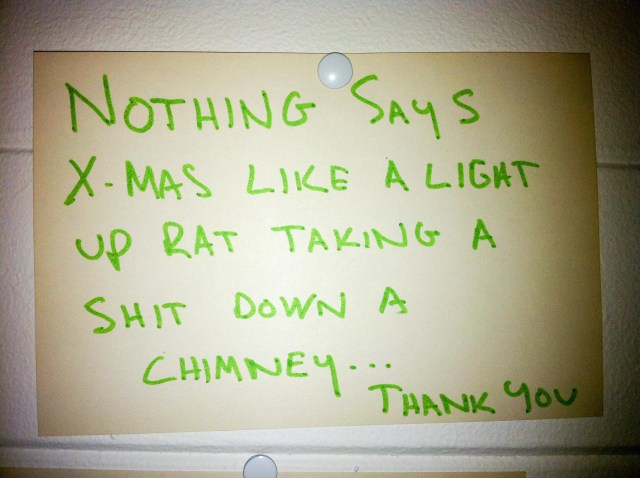 NOTHING SAYS
X-MAS LIKE A LIGHT
UP RAT TAKING A
SHIT DOWN A
CHIMNEY...
THANK YOU